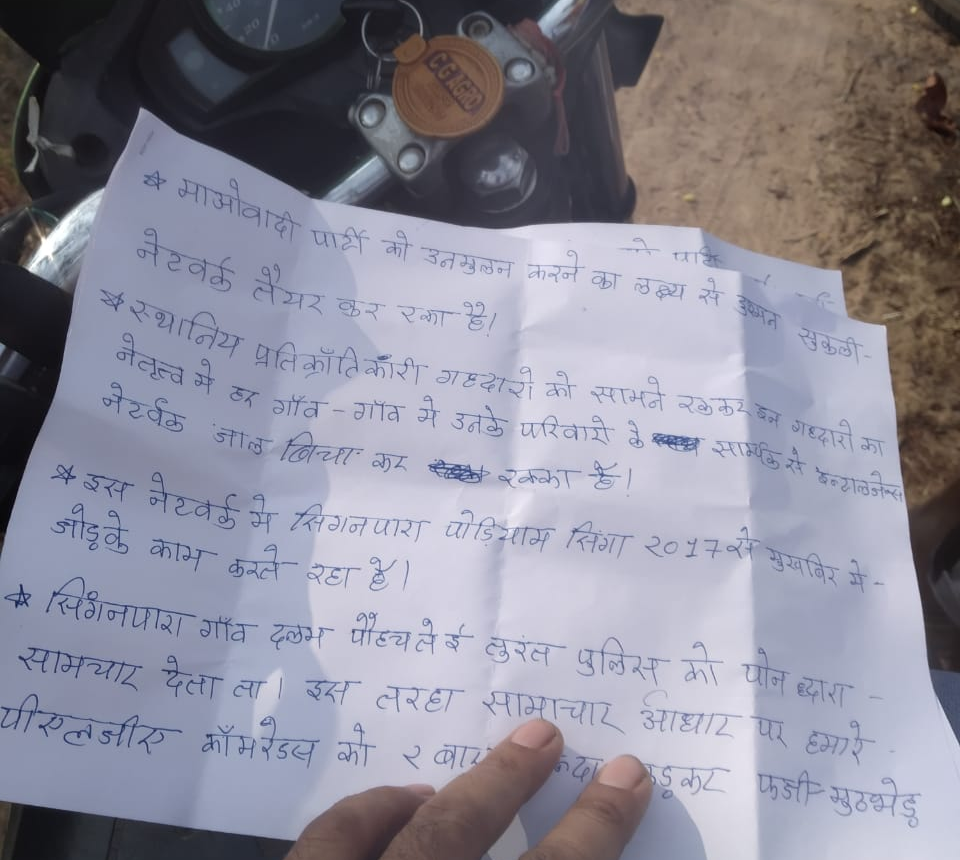 CGAGRO
* माओवादी पार्टी को उनमुलन करने का लक्ष्य से दुश्मन सुकुली-
नेटवर्क तैयर कर रका है।
* स्थानिय प्रतिक्राँतिकाँरी गद्दारो को सामने रककर इन गद्दारो का
नेतृत्व मे हर गाँव-गाँव मे उनके परिवारो के सार्म्पक से इन्टालजेन्स
नेटर्वक जाल बिचा कर रक्का है।
* इस नेटवर्क मे सिगनपारा पोड़ियाम सिंगा 2017से मुखबिर मे-
जोड़के काम करते रहा है।
* सिगंनपारा गाँव दलम पौहचते ई तुरंत पुलिस को पोन द्वारा -
सामचार देता ता। इस तरहा सामाचार आधार पर हमारे -
पीएलजीए काँमरेडस को २ बार कर फर्जी-मुठभेड़